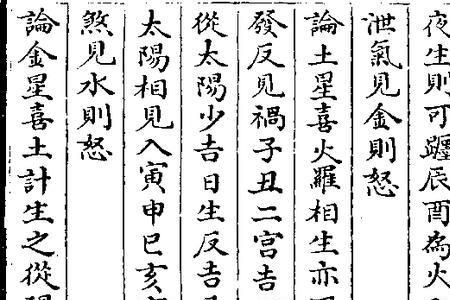 夜生則可躔辰酉為火
泄氣見金則怒
論土星喜火羅相生亦
發反見禍子丑二宮吉
從太陽少吉日生反吉
太陽相見入寅申巳亥
煞見水則怒
論金星喜土計生之從